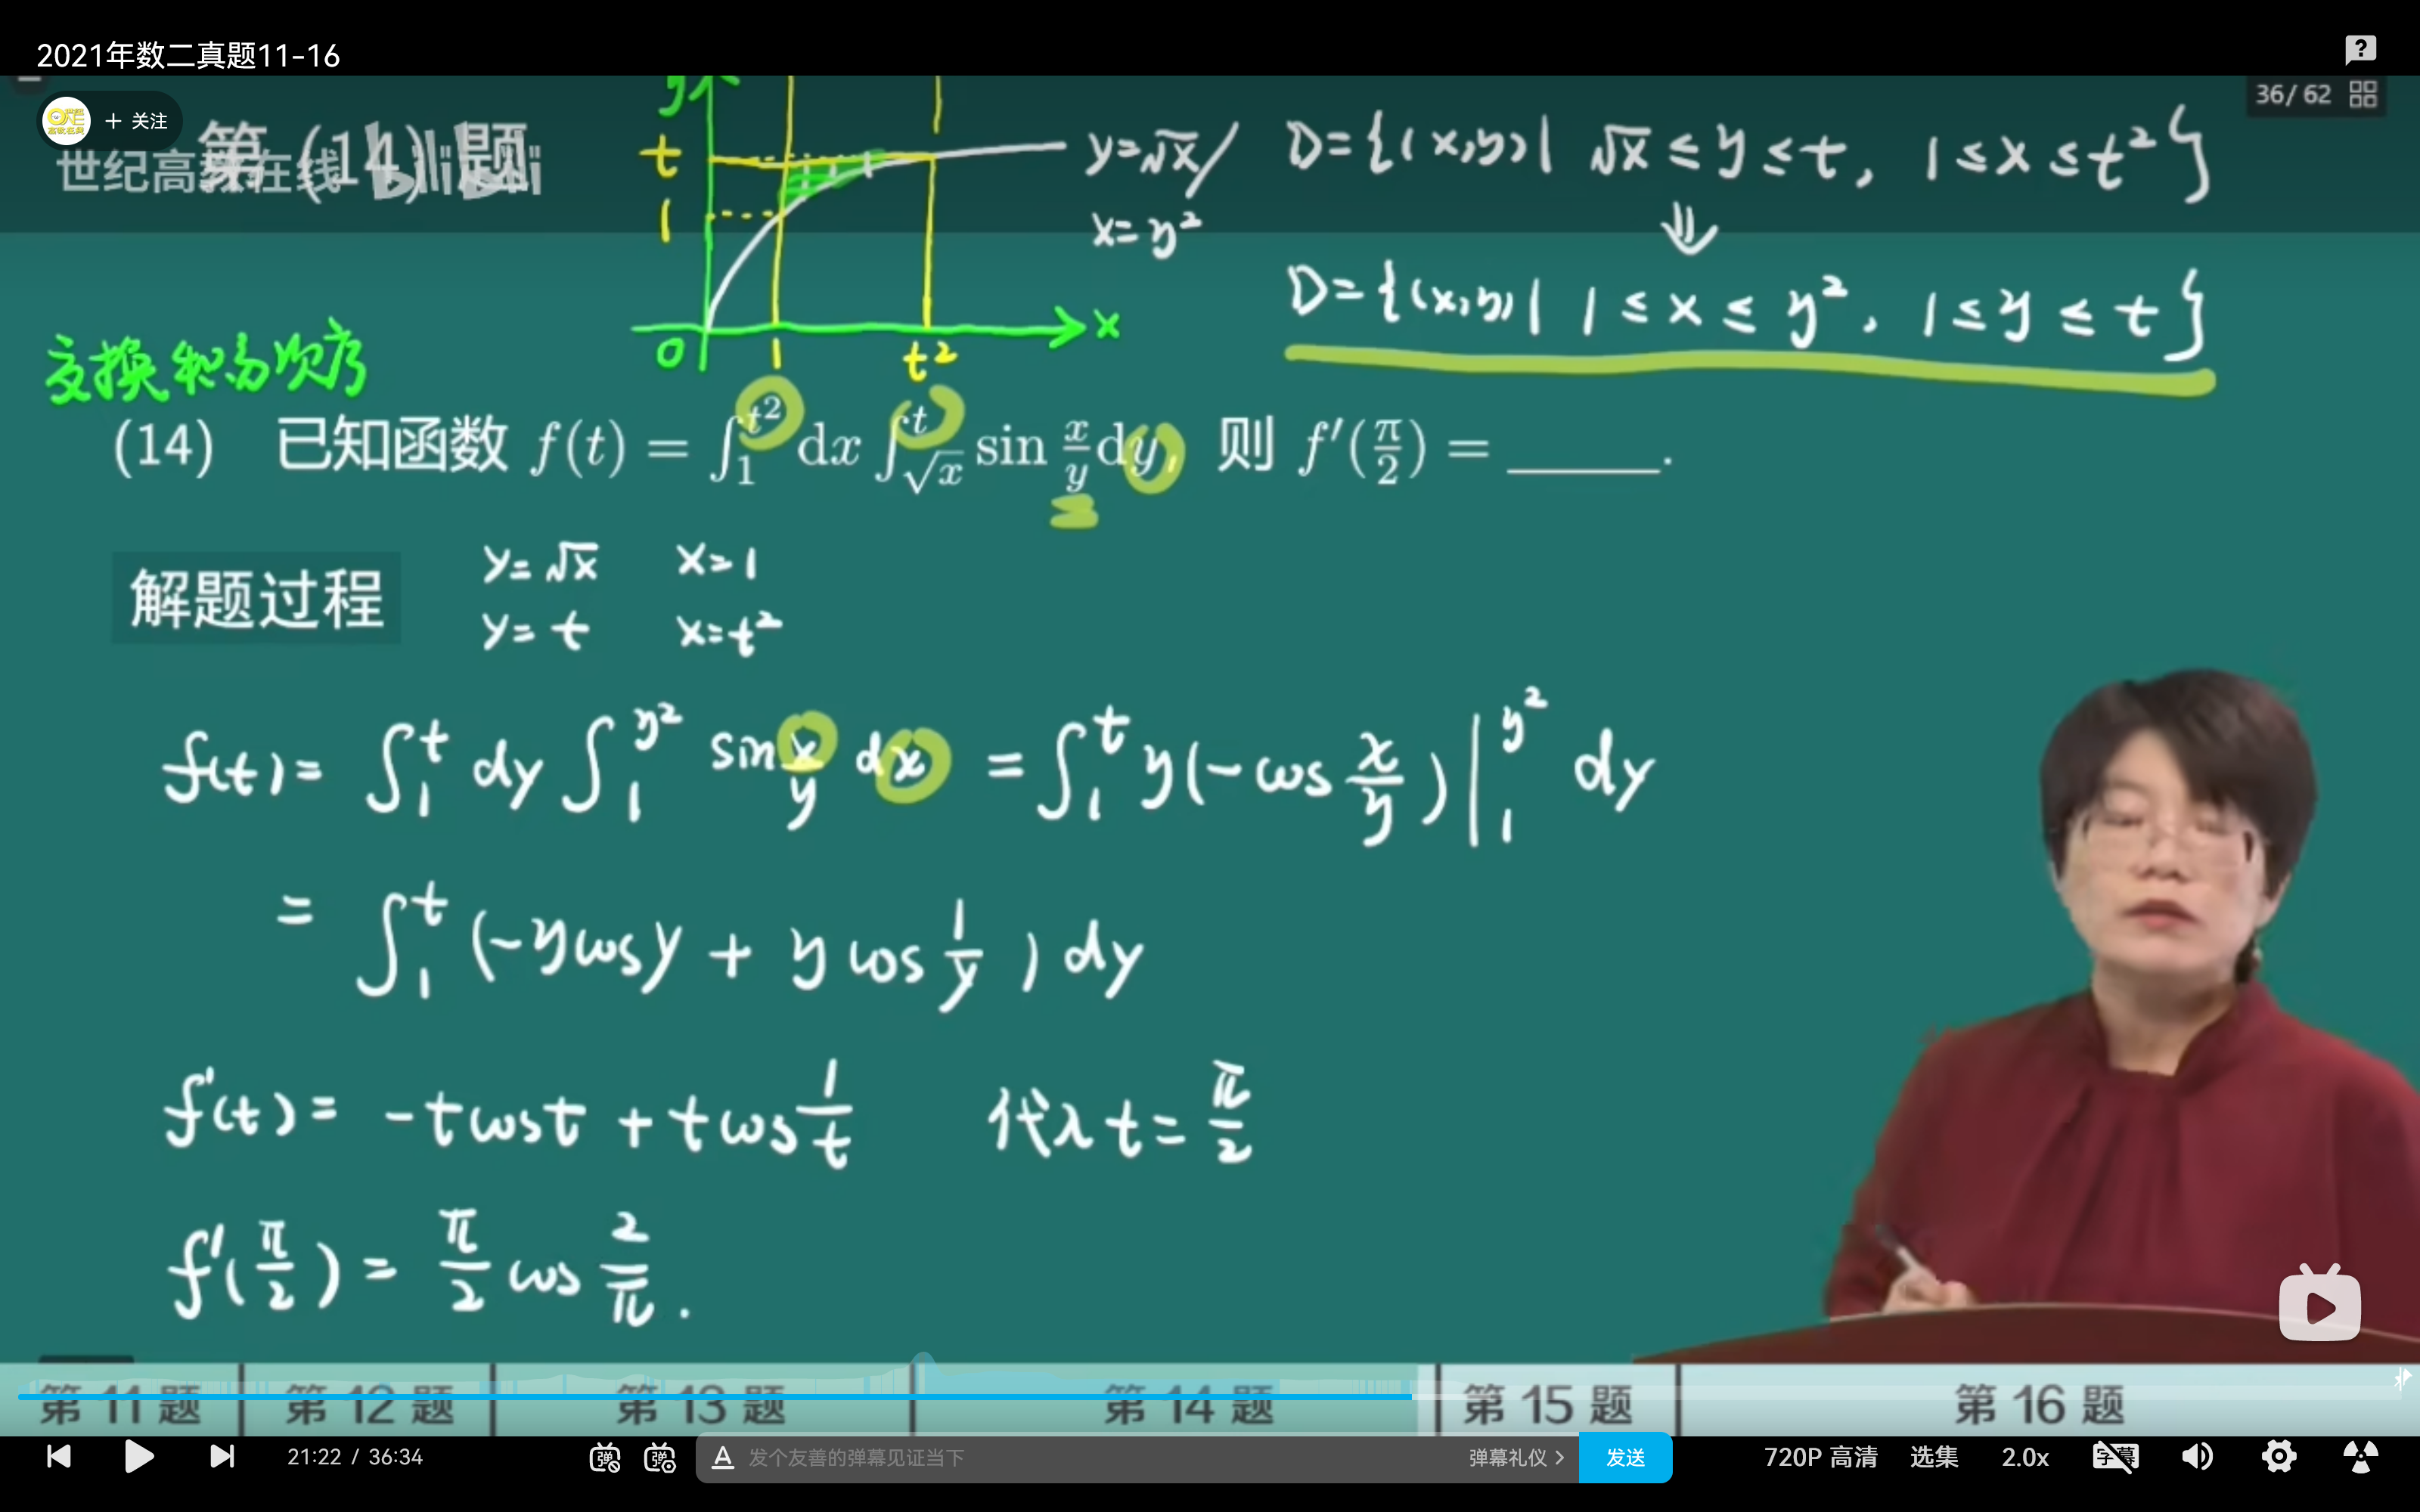 2021年数二真题11-16
36/ 62
+ 关注
第 (14) 题
世纪高教在线 bilibili
y
t
1
0
1
t²
x
y=√x
x=y²
D={(x,y)| √x ≤ y ≤ t, 1 ≤ x ≤ t²}
⇓
D={(x,y)| 1 ≤ x ≤ y², 1 ≤ y ≤ t}
交换积分次序
(14) 已知函数 f(t) = ∫₁^{t²} dx ∫_{√x}^{t} sin x/y dy, 则 f′(π/2) = ______.
解题过程
y=√x x=1
y=t x=t²
f(t)= ∫₁^t dy ∫₁^{y²} sin x/y dx = ∫₁^t y(-cos x/y)|₁^{y²} dy
= ∫₁^t (-ycosy + y cos 1/y) dy
f′(t)= -tcost + tcos 1/t 代入 t= π/2
f′(π/2)= π/2 cos 2/π.
第 11 题 第 12 题 第 13 题 第 14 题 第 15 题 第 16 题
21:22 / 36:34 弹 弹 A 发个友善的弹幕见证当下 弹幕礼仪 > 发送 720P 高清 选集 2.0x 字幕